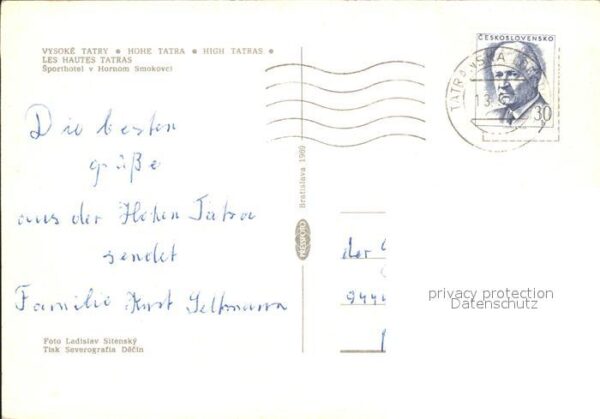 VYSOKÉ TATRY ● HOHE TATRA ● HIGH TATRAS ●
LES HAUTES TATRAS
Športhotel v Hornom Smokovci
ČESKOSLOVENSKO
30
TATRANSKÁ
13.
Die besten
grüße
aus der Hohen Tatra
sendet
Familie Kurt
Bratislava 1969
PRESSFOTO
der
privacy protection
Datenschutz
Foto Ladislav Sitenský
Tisk Severografia Děčín